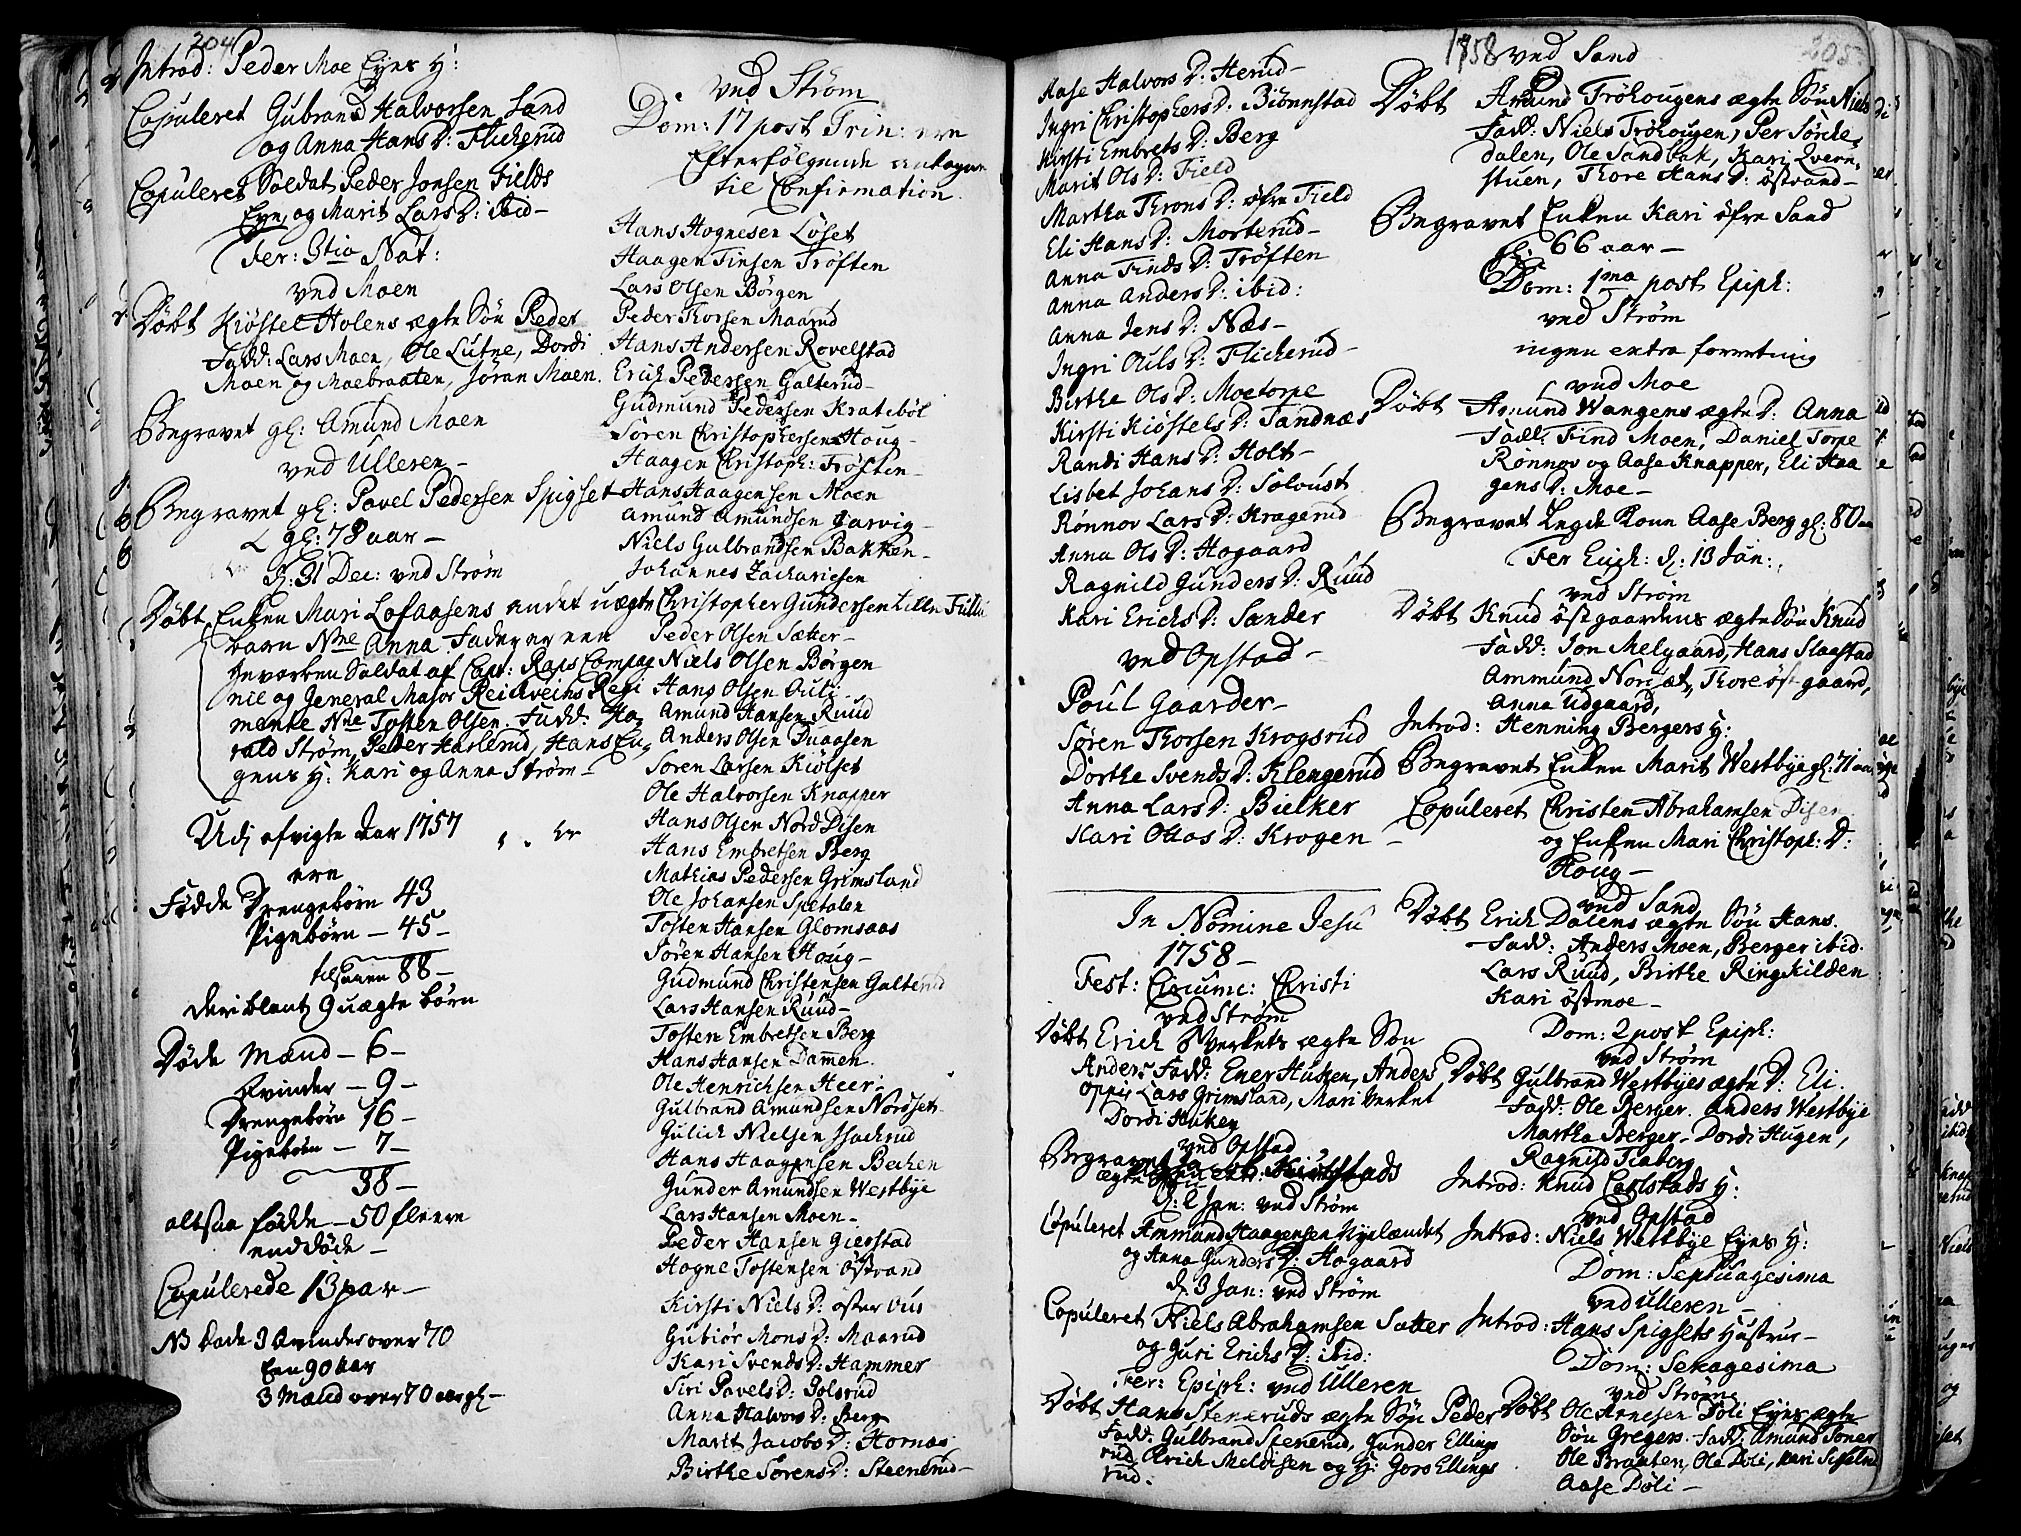 204
Introd: Peder Moe Eyes H:
Copuleret Gubrand Halvorsen Sand
og Anna Hans D: Flicherud
Copuleret Soldat Peder Jonsen Fields
Eye, og Marit Lars D: ibid
Fer: 3tia Nat:
ved Moen
Døbt Kiøstel Holens ægte Søn Peder
Fadd: Lars Moen, Ole Lutne, Dordi
Moen og Moebraaten, Jøran Moen.
Begravet gl: Amund Moen
ved Ulleren
Begravet gl: Povel Pedersen Spigset
gl: 78 aar
d: 31 Dec: ved Strøm
Døbt Enken Mari Lofaasens andet uægte
barn Nne Anna. Fader er een
Hverven Soldat af Capt: Raps Compag
nie og General Major Reichveins Regi
mente Nne Tosten Olsen. Fadd: Ha
rald Strøm, Peder Harlerud, Hans Eu
gens H: Kari og Anna Strøm
Udj afvigte Aar 1757
ere
Fødde Drengebørn 43
Pigebørn 45
tilsamen 88
deriblant 9 uægte børn
Døde Mænd 6
Qvinder 9
Drengebørn 16
Pigebørn 7
38
altsaa fødde 50 fleere
end døde
Copulerede 13 par
NB døde 3 Qvinder over 70
Een 90 aar
3 Mænd over 70 aar gl
ved Strøm
Dom: 17 post Trin: ere
Efterfølgende antagne
til Confirmation.
Hans Hognesen Løset
Haagen Finsen Trøften
Lars Olsen Børgen
Peder Thorsen Maarud
Hans Andersen Rovelstad
Erich Pedersen Galterud
Gudmund Pedersen Kratebøl
Søren Christophersen Houg
Haagen Christoph: Trøften
Hans Haagensen Moen
Amund Amundsen Jarvig
Niels Gulbrandsen Bakken
Johannes Zachariesen
Christopher Gundersen Lille Fulu
Peder Olsen Sætter
Niels Olsen Børgen
Hans Olsen Ouli
Amund Hansen Ruud
Anders Olsen Duaasen
Søren Larsen Kiølset
Ole Halvorsen Knapper
Hans Olsen Nord Disen
Hans Embretsen Berg
Mathias Pedersen Grimsland
Ole Johansen Spetalen
Tosten Hansen Glomsaas
Søren Hansen Houg
Gudmund Christensen Galterud
Lars Hansen Ruud
Tosten Embretsen Berg
Hans Hansen Dammen
Ole Henrichsen Heer
Gulbrand Amundsen Nordset
Gulich Nielsen Isachrud
Hans Haagensen Bechen
Gunder Amundsen Westbye
Lars Hansen Moen
Peder Hansen Gierstad
Hogne Tostensen Østrand
Kirsti Niels D: Øster Ous
Gubiør Mons D: Maarud
Kari Svends D: Hammer
Siri Povels D: Golsrud
Anna Halvors D: Berg
Marit Jacobs D: Hornæs
Birthe Sørens D: Steenerud
205
1758
Aase Halvors D: Herud
Ingri Christophers D: Biønnstad
Kirsti Embrets D: Berg
Marit Ols D: Field
Martha Throns D: Øfre Field
Eli Hans D: Morterud
Anna Finds D: Trøften
Anna Anders D: ibid:
Anna Jens D: Næs
Ingri Ouls D: Flicherud
Birthe Ols D: Moetorpe
Kirsti Kiøstels D: Sandnæs
Randi Hans D: Holt
Lisbet Johans D: Soloust
Rønnov Lars D: Kragerud
Anna Ols D: Hogaard
Ragnild Gunders D: Ruud
Kari Erichs D: Sander
ved Opstad
Poul Gaarder
Søren Thorsen Krogsrud
Dorthe Svends D: Klengerud
Anna Lars D: Bielker
Kari Ottos D: Krogen
In Nomine Jesu
1758
Fest: Circumc: Christi
ved Strøm
Døbt Erich Øverkets ægte Søn
Anders Fadd: Ener Huken, Anders
Oppi, Lars Grimsland, Mari Verket
Dordi Huken
ved Opstad
Begravet
ægte
d: 2 Jan: ved Strøm
Copuleret Ammund Haagensen Nylændet
og Anna Gunders D: Hogaard
d: 3 Jan: ved Strøm
Copuleret Niels Abrahamsen Sætter
og Guri Erichs D: ibid:
Fer: Epiph: ved Ulleren
Døbt Hans Steneruds ægte Søn Peder
Fadd: Gulbrand Stenerud, Gunder Ellings
rud, Erich Meldisen og H: Goro Ellings
rud.
ved Sand
Døbt Amund Trøhougens ægte Søn Niels
Fadd: Niels Trøhougen, Per Sørche
dalen, Ole Sandbak, Kari Qvern
stuen, Thore Hans D: Østrand
Begravet Enken Kari Øfre Sand
gl: 66 aar
Dom: 1ma post Epiph:
ved Strøm
ingen extra forretning
ved Moe
Døbt Amund Wangens ægte D: Anna
Fadd: Find Moen, Daniel Torpe
Rønnov og Aase Knapper, Eli Haa
gens D: Moe
Begravet Legde Kone Aase Berg gl: 80
Fer Euch: d: 13 Jan:
ved Strøm
Døbt Knud Østgaardens ægte Søn Knud
Fadd: Jon Melgaard, Hans Slaastad
Ammund Noresæt, Thore Østgaard,
Anna Udgaard,
Introd: Henning Bergers H:
Begravet Enken Marit Westbye gl: 71 aar
Copuleret Christen Abrahamsen Disen
og Enken Mari Christoph: D:
Houg
ved Sand
Døbt Erich Dalens ægte Søn Hans.
Fadd: Anders Moen, Berger ibid.
Lars Ruud, Birthe Ringkilden
Kari Østmoe
Dom: 2 post Epiph:
ved Strøm
Døbt Gulbrand Westbyes ægte D: Eli.
Fadd: Ole Berger. Anders Westbye
Martha Berger, Dordi Hugen,
Ragnild Fiaberg
Introd: Knud Carlstads H:
ved Opstad
Introd: Niels Westbye Eyes H:
Dom: Septuagesima
ved Ulleren
Introd: Hans Spigsets Hustrue
Dom: Sexagesima
ved Strøm
Døbt Ole Arnesen Døli Eyes ægte
Søn Gregers. Fadd: Amund Soner
Ole Braaten, Ole Døli, Kari
Aase Døli